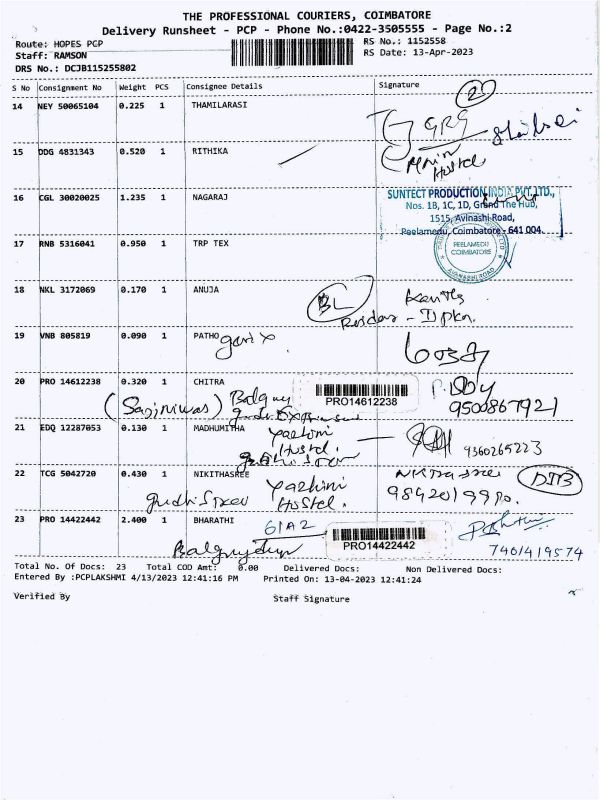 THE PROFESSIONAL COURIERS, COIMBATORE
Delivery Runsheet - PCP - Phone No.:0422-3505555 - Page No.:2
Route: HOPES PCP RS No.: 1152558
Staff: RAMSON RS Date: 13-Apr-2023
DRS No.: DCJB115255802
S No Consignment No Weight PCS Consignee Details Signature
14 NEY 50065104 0.225 1 THAMILARASI
GRG
Main
Hostel
15 DDG 4831343 0.520 1 RITHIKA
16 CGL 30020025 1.235 1 NAGARAJ
SUNTECT PRODUCTION INDIA PVT.LTD.,
Nos. 1B, 1C, 1D, Grand The Hub,
1515, Avinashi Road,
Peelamedu, Coimbatore - 641 004.
17 RNB 5316041 0.950 1 TRP TEX
PEELAMEDU
COIMBATORE
AVINASHI ROAD
18 NKL 3172069 0.170 1 ANUJA
BL
19 VNB 805819 0.090 1 PATHO
20 PRO 14612238 0.320 1 CHITRA
PRO14612238
(Sasiniwas)
9500867921
21 EDQ 12287053 0.130 1 MADHUMITHA
Yazhini
Hostel.
9360265223
22 TCG 5042720 0.430 1 NIKITHASREE
Yazhini
Hostel.
23 PRO 14422442 2.400 1 BHARATHI
61A2
PRO14422442
7461419574
Total No. Of Docs: 23 Total COD Amt: 0.00 Delivered Docs: Non Delivered Docs:
Entered By :PCPLAKSHMI 4/13/2023 12:41:16 PM Printed On: 13-04-2023 12:41:24
Verified By Staff Signature